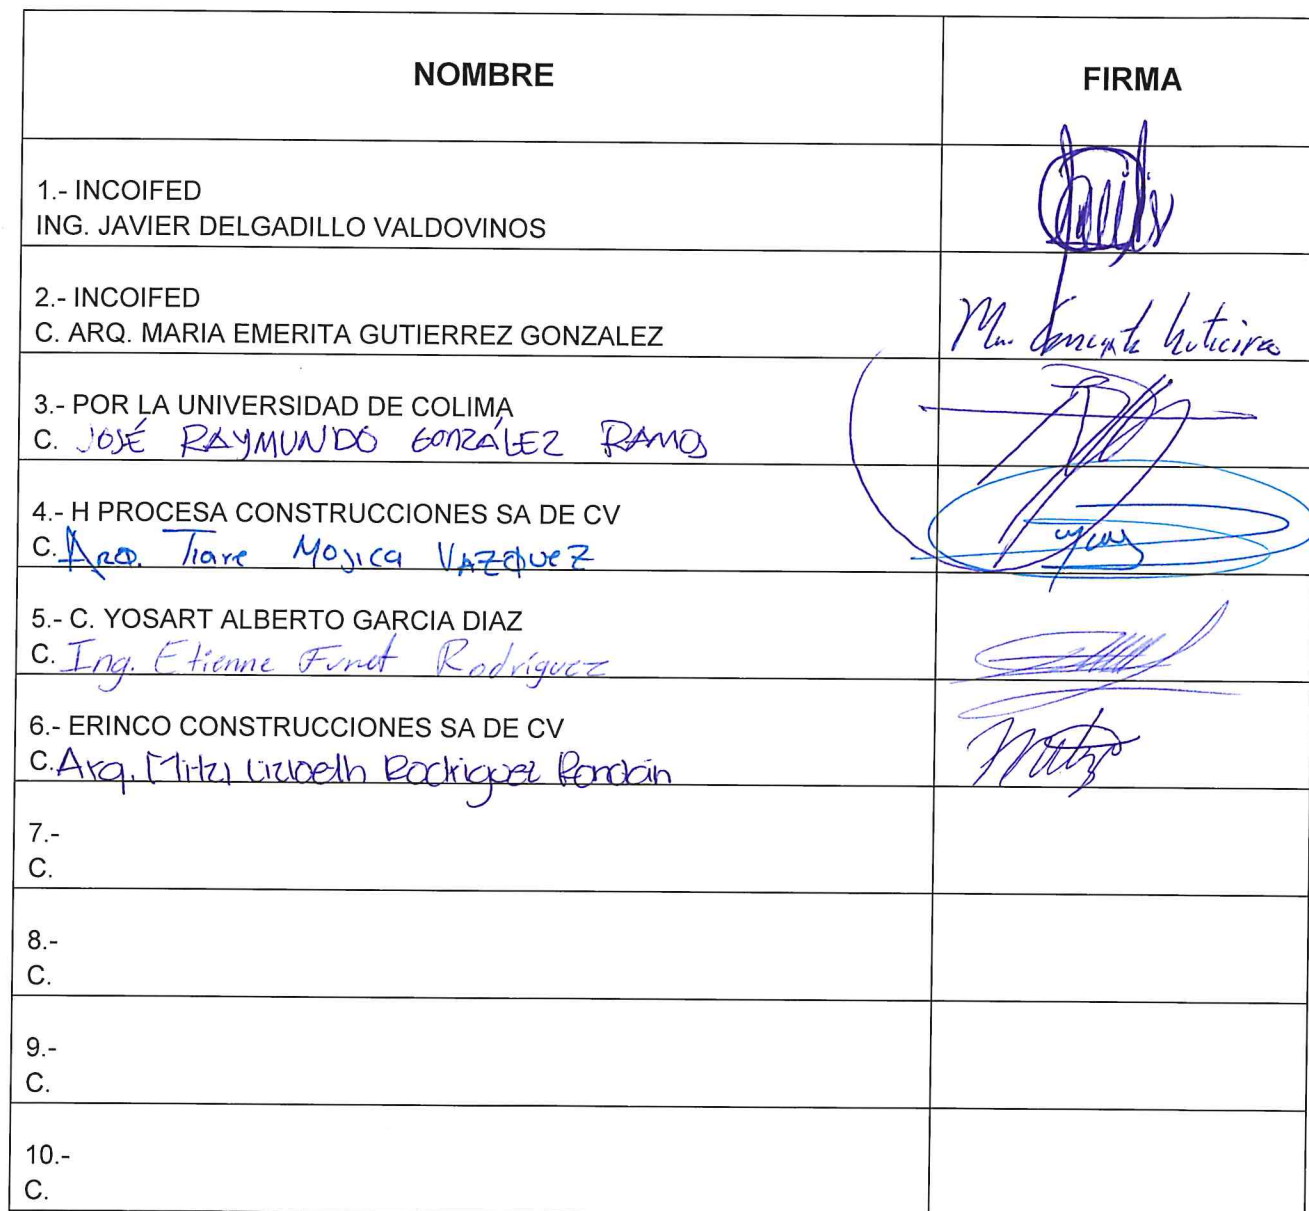 NOMBRE
FIRMA
1.- INCOIFED
ING. JAVIER DELGADILLO VALDOVINOS
2.- INCOIFED
C. ARQ. MARIA EMERITA GUTIERREZ GONZALEZ
3.- POR LA UNIVERSIDAD DE COLIMA
C. JOSÉ RAYMUNDO GONZÁLEZ RAMOS
4.- H PROCESA CONSTRUCCIONES SA DE CV
C. ARQ. Tiare Mojica VAZQUEZ
5.- C. YOSART ALBERTO GARCIA DIAZ
C. Ing. Etienne Funet Rodríguez
6.- ERINCO CONSTRUCCIONES SA DE CV
C. Arq. Mitzi Lizbeth Rodriguez Rondán
7.-
C.
8.-
C.
9.-
C.
10.-
C.